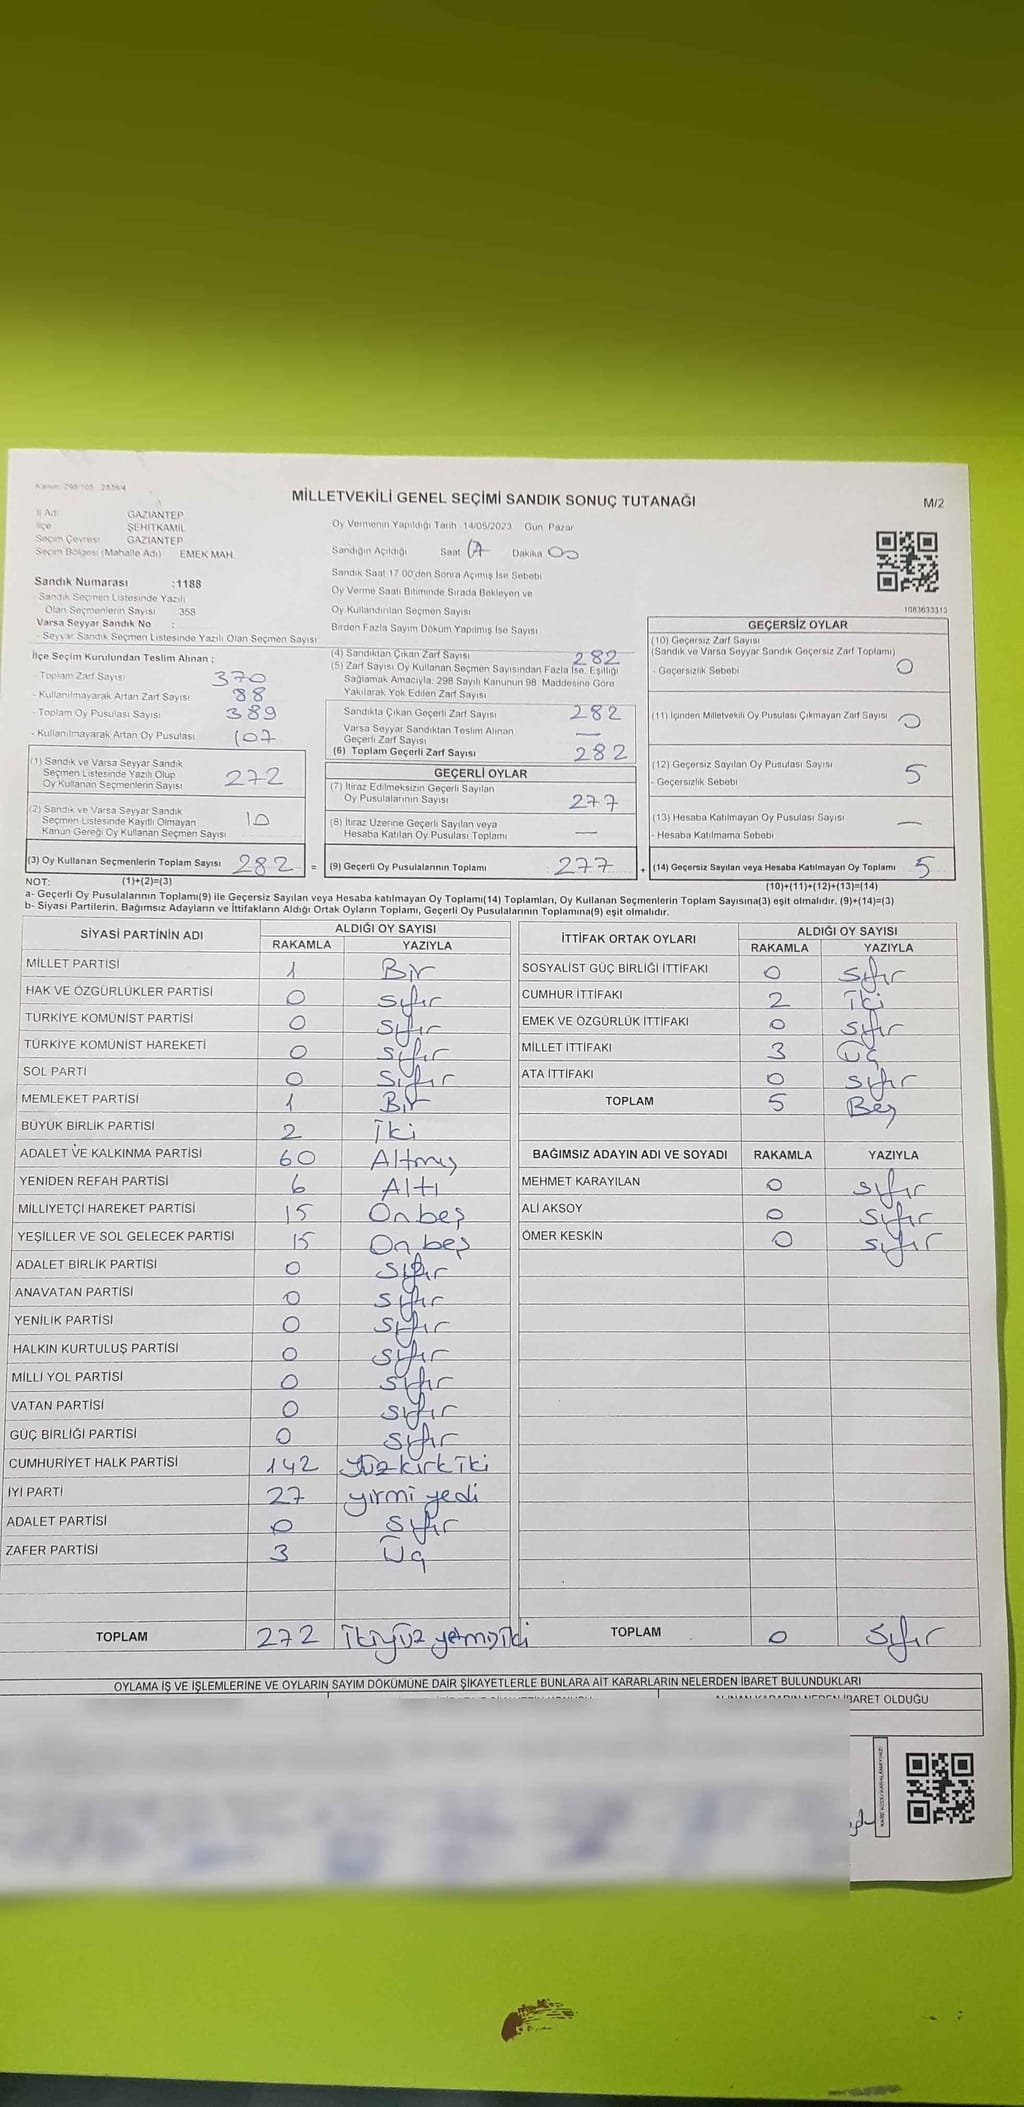 MİLLETVEKİLİ GENEL SEÇİMİ SANDIK SONUÇ TUTANAĞI
M/2
İl Adı GAZİANTEP
İlçe ŞEHİTKAMİL
Seçim Çevresi GAZİANTEP
Seçim Bölgesi (Mahalle Adı) EMEK MAH.
Sandık Numarası :1188
- Sandık Seçmen Listesinde Yazılı
Olan Seçmenlerin Sayısı 358
Varsa Seyyar Sandık No :
- Seyyar Sandık Seçmen Listesinde Yazılı Olan Seçmen Sayısı
Oy Vermenin Yapıldığı Tarih 14/05/2023 Gün Pazar
Sandığın Açıldığı Saat 17 Dakika 00
Sandık Saat 17.00'den Sonra Açımış İse Sebebi
Oy Verme Saati Bitiminde Sırada Bekleyen ve
Oy Kullandırılan Seçmen Sayısı
Birden Fazla Sayım Döküm Yapılmış İse Sayısı
1083633313
İlçe Seçim Kurulundan Teslim Alınan ;
- Toplam Zarf Sayısı 370
- Kullanılmayarak Artan Zarf Sayısı 88
- Toplam Oy Pusulası Sayısı 389
- Kullanılmayarak Artan Oy Pusulası 107
(1) Sandık ve Varsa Seyyar Sandık
Seçmen Listesinde Yazılı Olup
Oy Kullanan Seçmenlerin Sayısı 272
(2) Sandık ve Varsa Seyyar Sandık
Seçmen Listesinde Kayıtlı Olmayan
Kanun Gereği Oy Kullanan Seçmen Sayısı 10
(3) Oy Kullanan Seçmenlerin Toplam Sayısı 282 =
(4) Sandıktan Çıkan Zarf Sayısı 282
(5) Zarf Sayısı Oy Kullanan Seçmen Sayısından Fazla İse, Eşitliği
Sağlamak Amacıyla: 298 Sayılı Kanunun 98. Maddesine Göre
Yakılarak Yok Edilen Zarf Sayısı
Sandıkta Çıkan Geçerli Zarf Sayısı 282
Varsa Seyyar Sandıktan Teslim Alınan
Geçerli Zarf Sayısı —
(6) Toplam Geçerli Zarf Sayısı 282
GEÇERLİ OYLAR
(7) İtiraz Edilmeksizin Geçerli Sayılan
Oy Pusulalarının Sayısı 277
(8) İtiraz Üzerine Geçerli Sayılan veya
Hesaba Katılan Oy Pusulası Toplamı —
(9) Geçerli Oy Pusulalarının Toplamı 277 +
GEÇERSİZ OYLAR
(10) Geçersiz Zarf Sayısı
(Sandık ve Varsa Seyyar Sandık Geçersiz Zarf Toplamı)
- Geçersizlik Sebebi 0
(11) İçinden Milletvekili Oy Pusulası Çıkmayan Zarf Sayısı 0
(12) Geçersiz Sayılan Oy Pusulası Sayısı 5
- Geçersizlik Sebebi
(13) Hesaba Katılmayan Oy Pusulası Sayısı —
- Hesaba Katılmama Sebebi
(14) Geçersiz Sayılan veya Hesaba Katılmayan Oy Toplamı 5
NOT: (1)+(2)=(3)
(10)+(11)+(12)+(13)=(14)
a- Geçerli Oy Pusulalarının Toplamı(9) ile Geçersiz Sayılan veya Hesaba katılmayan Oy Toplamı(14) Toplamları, Oy Kullanan Seçmenlerin Toplam Sayısına(3) eşit olmalıdır. (9)+(14)=(3)
b- Siyasi Partilerin, Bağımsız Adayların ve İttifakların Aldığı Ortak Oyların Toplamı, Geçerli Oy Pusulalarının Toplamına(9) eşit olmalıdır.
SİYASİ PARTİNİN ADI ALDIĞI OY SAYISI
RAKAMLA YAZIYLA
MİLLET PARTİSİ 1 Bir
HAK VE ÖZGÜRLÜKLER PARTİSİ 0 Sıfır
TÜRKİYE KOMÜNİST PARTİSİ 0 Sıfır
TÜRKİYE KOMÜNİST HAREKETİ 0 Sıfır
SOL PARTİ 0 Sıfır
MEMLEKET PARTİSİ 1 Bir
BÜYÜK BİRLİK PARTİSİ 2 İki
ADALET VE KALKINMA PARTİSİ 60 Altmış
YENİDEN REFAH PARTİSİ 6 Altı
MİLLİYETÇİ HAREKET PARTİSİ 15 Onbeş
YEŞİLLER VE SOL GELECEK PARTİSİ 15 On beş
ADALET BİRLİK PARTİSİ 0 Sıfır
ANAVATAN PARTİSİ 0 Sıfır
YENİLİK PARTİSİ 0 Sıfır
HALKIN KURTULUŞ PARTİSİ 0 Sıfır
MİLLİ YOL PARTİSİ 0 Sıfır
VATAN PARTİSİ 0 Sıfır
GÜÇ BİRLİĞİ PARTİSİ 0 Sıfır
CUMHURİYET HALK PARTİSİ 142 Yüz kırk iki
İYİ PARTİ 27 yirmi yedi
ADALET PARTİSİ 0 Sıfır
ZAFER PARTİSİ 3 Üç
TOPLAM 272 İkiyüz yetmiş iki
İTTİFAK ORTAK OYLARI ALDIĞI OY SAYISI
RAKAMLA YAZIYLA
SOSYALİST GÜÇ BİRLİĞİ İTTİFAKI 0 Sıfır
CUMHUR İTTİFAKI 2 İki
EMEK VE ÖZGÜRLÜK İTTİFAKI 0 Sıfır
MİLLET İTTİFAKI 3 Üç
ATA İTTİFAKI 0 Sıfır
TOPLAM 5 Beş
BAĞIMSIZ ADAYIN ADI VE SOYADI RAKAMLA YAZIYLA
MEHMET KARAYILAN 0 Sıfır
ALİ AKSOY 0 Sıfır
ÖMER KESKİN 0 Sıfır
TOPLAM 0 Sıfır
OYLAMA İŞ VE İŞLEMLERİNE VE OYLARIN SAYIM DÖKÜMÜNE DAİR ŞİKAYETLERLE BUNLARA AİT KARARLARIN NELERDEN İBARET BULUNDUKLARI
OLDUĞU